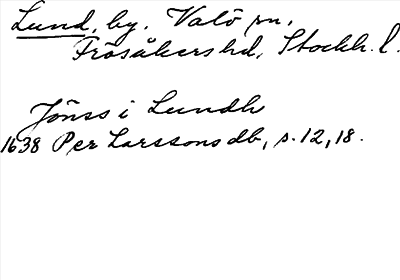 Lund, by. Valö sn.
Frösåkers hd, Stockh. l.
Jönss i Lundh
1638 Per Larssons db, s. 12, 18.